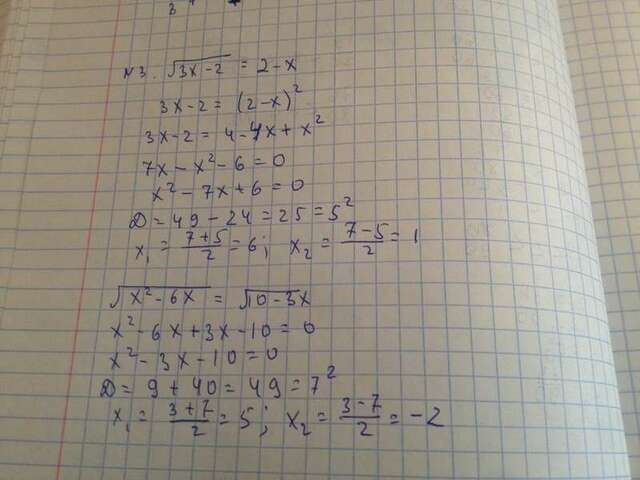 №3. √3x-2 = 2-x
3x-2 = (2-x)²
3x-2 = 4-4x+x²
7x-x²-6=0
x²-7x+6=0
D=49-24=25=5²
x₁ = 7+5/2 = 6; x₂ = 7-5/2 = 1
√x²-6x = √10-3x
x²-6x+3x-10=0
x²-3x-10=0
D=9+40=49=7²
x₁ = 3+7/2 = 5; x₂ = 3-7/2 = -2